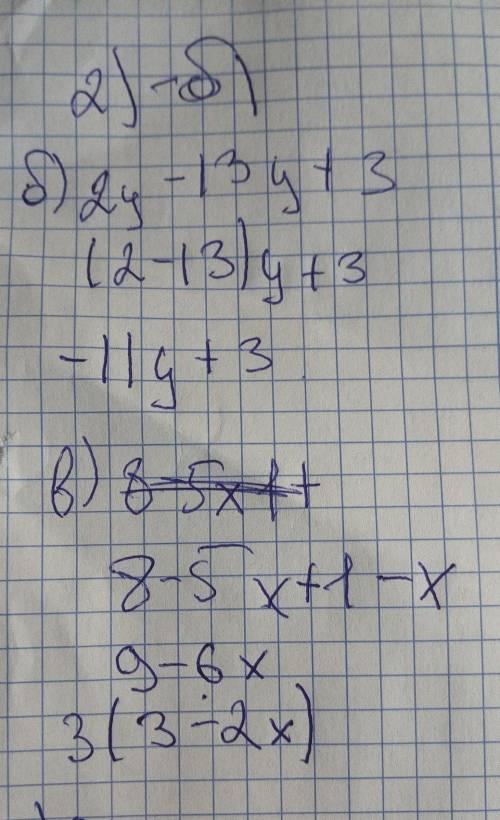 2) - б)
б) 2y - 13y + 3
(2 - 13)y + 3
-11y + 3
в)
8 - 5x + 1 - x
9 - 6x
3(3 - 2x)